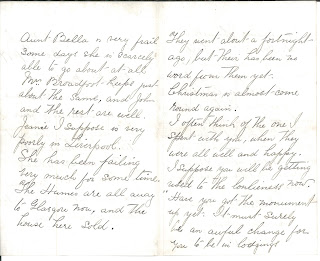 Aunt Bella is very frail
some days she is scarcely
able to go about at all
Mr. Broadfoot keeps just
about the same, and John
and the rest are well.
Jeanie I suppose is very
poorly in Liverpool.
She has been failing
very much for some time.
The Humes are all away
to Glasgow now, and the
house here sold.
They went about a fortnight
ago, but their has been no
word from them yet.
Christmas is almost come
round again.
I often think of the one I
spent with you, when they
were all well and happy.
I suppose you will be getting
used to the lonliness now.
Have you got the monument
up yet. It must surely
be an awful change for
you to be in lodgings